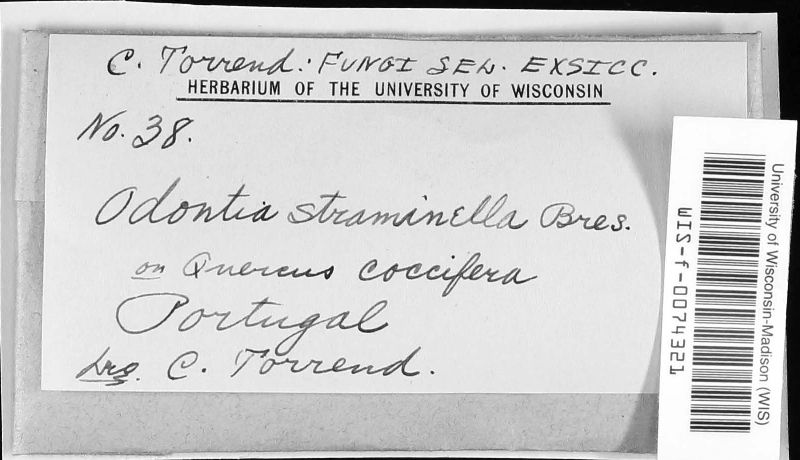 C. Torrend: FUNGI SEL. EXSICC.
HERBARIUM OF THE UNIVERSITY OF WISCONSIN
No. 38.
Odontia straminella Bres.
on Quercus coccifera
Portugal
C. Torrend.
University of Wisconsin-Madison (WIS)
WIS-f-0074321